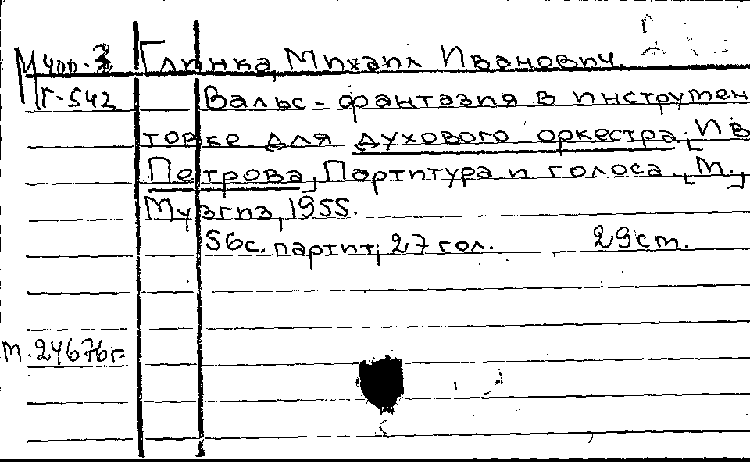 М400.3 Глинка, Михаил Иванович.
Г-542 Вальс-фантазия в инструмен
товке для духового оркестра, [В
Петрова,] Партитура и голоса. [М.,]
Музгиз, 1955.
56с. партит; 27 гол. 29 см.
М. 24676г